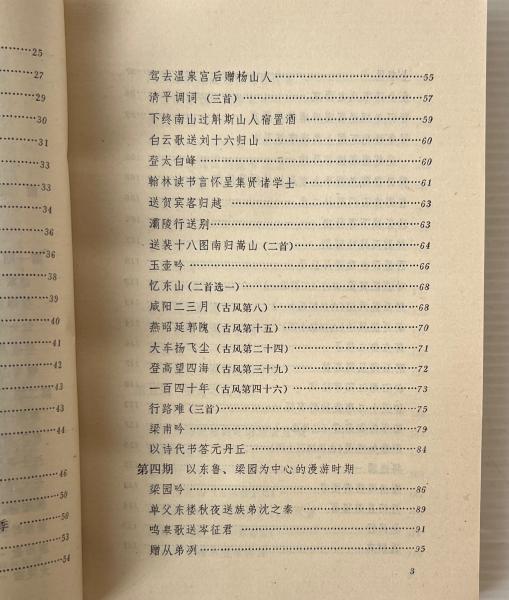 25
27
29
30
31
33
33
34
36
36
38
39
40
42
43
43
44
46
50
季 50
53
54
驾去温泉宫后赠杨山人 55
清平调词(三首) 57
下终南山过斛斯山人宿置酒 59
白云歌送刘十六归山 60
登太白峰 60
翰林读书言怀呈集贤诸学士 61
送贺宾客归越 63
灞陵行送别 63
送裴十八图南归嵩山(二首) 64
玉壶吟 66
忆东山(二首选一) 68
咸阳二三月(古风第八) 68
燕昭延郭隗(古风第十五) 70
大车扬飞尘(古风第二十四) 71
登高望四海(古风第三十九) 72
一百四十年(古风第四十六) 73
行路难(三首) 75
梁甫吟 79
以诗代书答元丹丘 84
第四期 以东鲁、梁园为中心的漫游时期
梁园吟 86
单父东楼秋夜送族弟沈之秦 89
鸣皋歌送岑征君 91
赠从弟冽 95
3